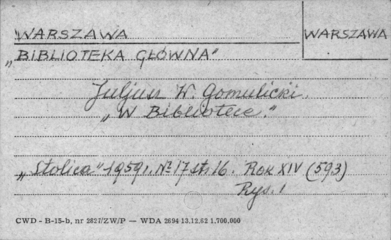 WARSZAWA
WARSZAWA
„BIBLIOTEKA GŁÓWNA"
Juljusz W. Gomulicki.
„W Bibliotece."
„Stolica" 1959 r. Nr 17 str. 16. Rok XIV (593)
Rys. 1
CWD - B-15-b, nr 2627/ZW/P — WDA 2694 13.12.62 1.700.000